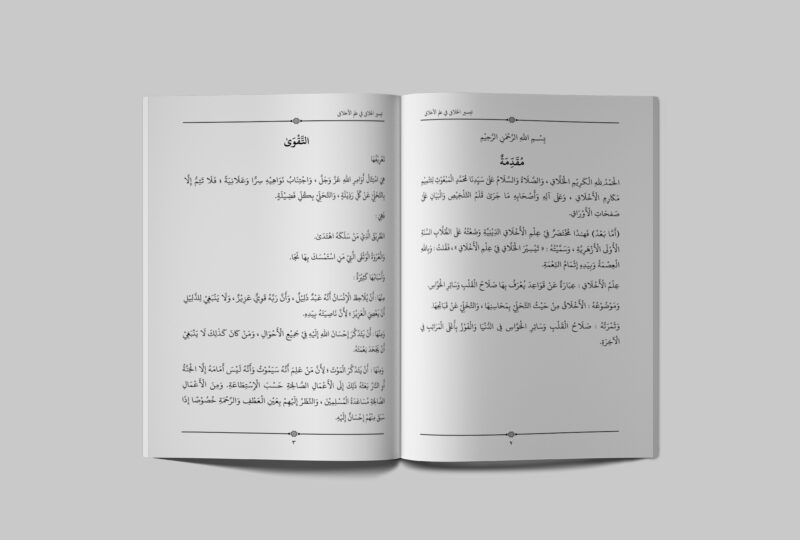 تيسير الخلاق في علم الأخلاق
بِسْمِ اللهِ الرَّحْمَنِ الرَّحِيْمِ
مُقَدِّمَةٌ
الحَمْدُ لِلهِ الْكَرِيْمِ الْخَلَّاقِ ، وَالصَّلَاةُ وَالسَّلَامُ عَلَى سَيِّدِنَا مُحَمَّدٍ الْمَبْعُوْثِ بِتَتْمِيْمِ
مَكَارِمِ الْأَخْلَاقِ ، وَعَلَى آلِهِ وَأَصْحَابِهِ مَا جَرَى قَلَمُ التَّلْخِيْصِ وَالْبَيَانِ عَلَى
صَفَحَاتِ الْأَوْرَاقِ.
(أَمَّا بَعْدُ) فَهٰذَا مُخْتَصَرٌ فِيْ عِلْمِ الْأَخْلَاقِ الدِّيْنِيَّةِ وَضَعْتُهُ عَلَى الطُّلَّابِ السَّنَةِ
الْأُوْلَى الْأَزْهَرِيَّةِ ، وَسَمَّيْتُهُ : « تَيْسِيْرَ الْخَلَّاقِ فِيْ عِلْمِ الْأَخْلَاقِ » ، فَقُلْتُ : وَبِاللهِ
الْعِصْمَةُ وَبِيَدِهِ إِتْمَامُ النِّعْمَةِ.
عِلْمُ الْأَخْلَاقِ : عِبَارَةٌ عَنْ قَوَاعِدَ يُعْرَفُ بِهَا صَلَاحُ الْقَلْبِ وَسَائِرِ الْحَوَاسِّ.
وَمَوْضُوْعُهُ : الْأَخْلَاقُ مِنْ حَيْثُ التَّحَلِّيْ بِمَحَاسِنِهَا ، وَالتَّخَلِّيْ عَنْ قَبَائِحِهَا.
وَثَمْرَتُهُ : صَلَاحُ الْقَلْبِ وَسَائِرِ الْحَوَاسِّ فِي الدُّنْيَا وَالْفَوْزُ بِأَعْلَى الْمَرَاتِبِ فِي
الْآخِرَةِ.
٢
تيسير الخلاق في علم الأخلاق
التَّقْوَىٰ
تَعْرِيْفُهَا
هِيَ امْتِثَالُ أَوَامِرِ اللهِ عَزَّ وَجَلَّ ، وَاجْتِنَابُ نَوَاهِيْهِ سِرًّا وَعَلَانِيَةً ؛ فَلَا تَتِمُّ إِلَّا
بِالتَّخَلِّيْ عَنْ كُلِّ رَذِيْلَةٍ ، وَالتَّحَلِّيْ بِكُلِّ فَضِيْلَةٍ.
فَهِيَ :
الطَّرِيْقُ الَّذِيْ مَنْ سَلَكَهُ اهْتَدَىٰ.
وَالْعُرْوَةُ الْوُثْقَى الَّتِيْ مَنِ اسْتَمْسَكَ بِهَا نَجَا.
وَأَسْبَابُهَا كَثِيْرَةٌ :
مِنْهَا : أَنْ يُلَاحِظَ الْإِنْسَانُ أَنَّهُ عَبْدٌ ذَلِيْلٌ ، وَأَنَّ رَبَّهُ قَوِيٌّ عَزِيْزٌ ، وَلَا يَنْبَغِيْ لِلذَّلِيْلِ
أَنْ يَعْصِيَ الْعَزِيْزَ ؛ لِأَنَّ نَاصِيَتَهُ بِيَدِهِ.
وَمِنْهَا : أَنْ يَتَذَكَّرَ إِحْسَانَ اللهِ إِلَيْهِ فِيْ جَمِيْعِ الْأَحْوَالِ ، وَمَنْ كَانَ كَذٰلِكَ لَا يَنْبَغِيْ
أَنْ تُجْحَدَ نِعْمَتُهُ.
وَمِنْهَا : أَنْ يَتَذَكَّرَ الْمَوْتَ ؛ لِأَنَّ مَنْ عَلِمَ أَنَّهُ سَيَمُوْتُ وَأَنَّهُ لَيْسَ أَمَامَهُ إِلَّا الْجَنَّةُ
أَوِ النَّارُ بَعَثَهُ ذٰلِكَ إِلَى الْأَعْمَالِ الصَّالِحَةِ حَسَبَ الْإِسْتِطَاعَةِ. وَمِنَ الْأَعْمَالِ
الصَّالِحَةِ مُسَاعَدَةُ الْمُسْلِمِيْنَ ، وَالنَّظَرُ إِلَيْهِمْ بِعَيْنِ الْعَطْفِ وَالرَّحْمَةِ خُصُوْصًا إِذَا
سَبَقَ مِنْهُمْ إِحْسَانٌ إِلَيْهِ.
٣